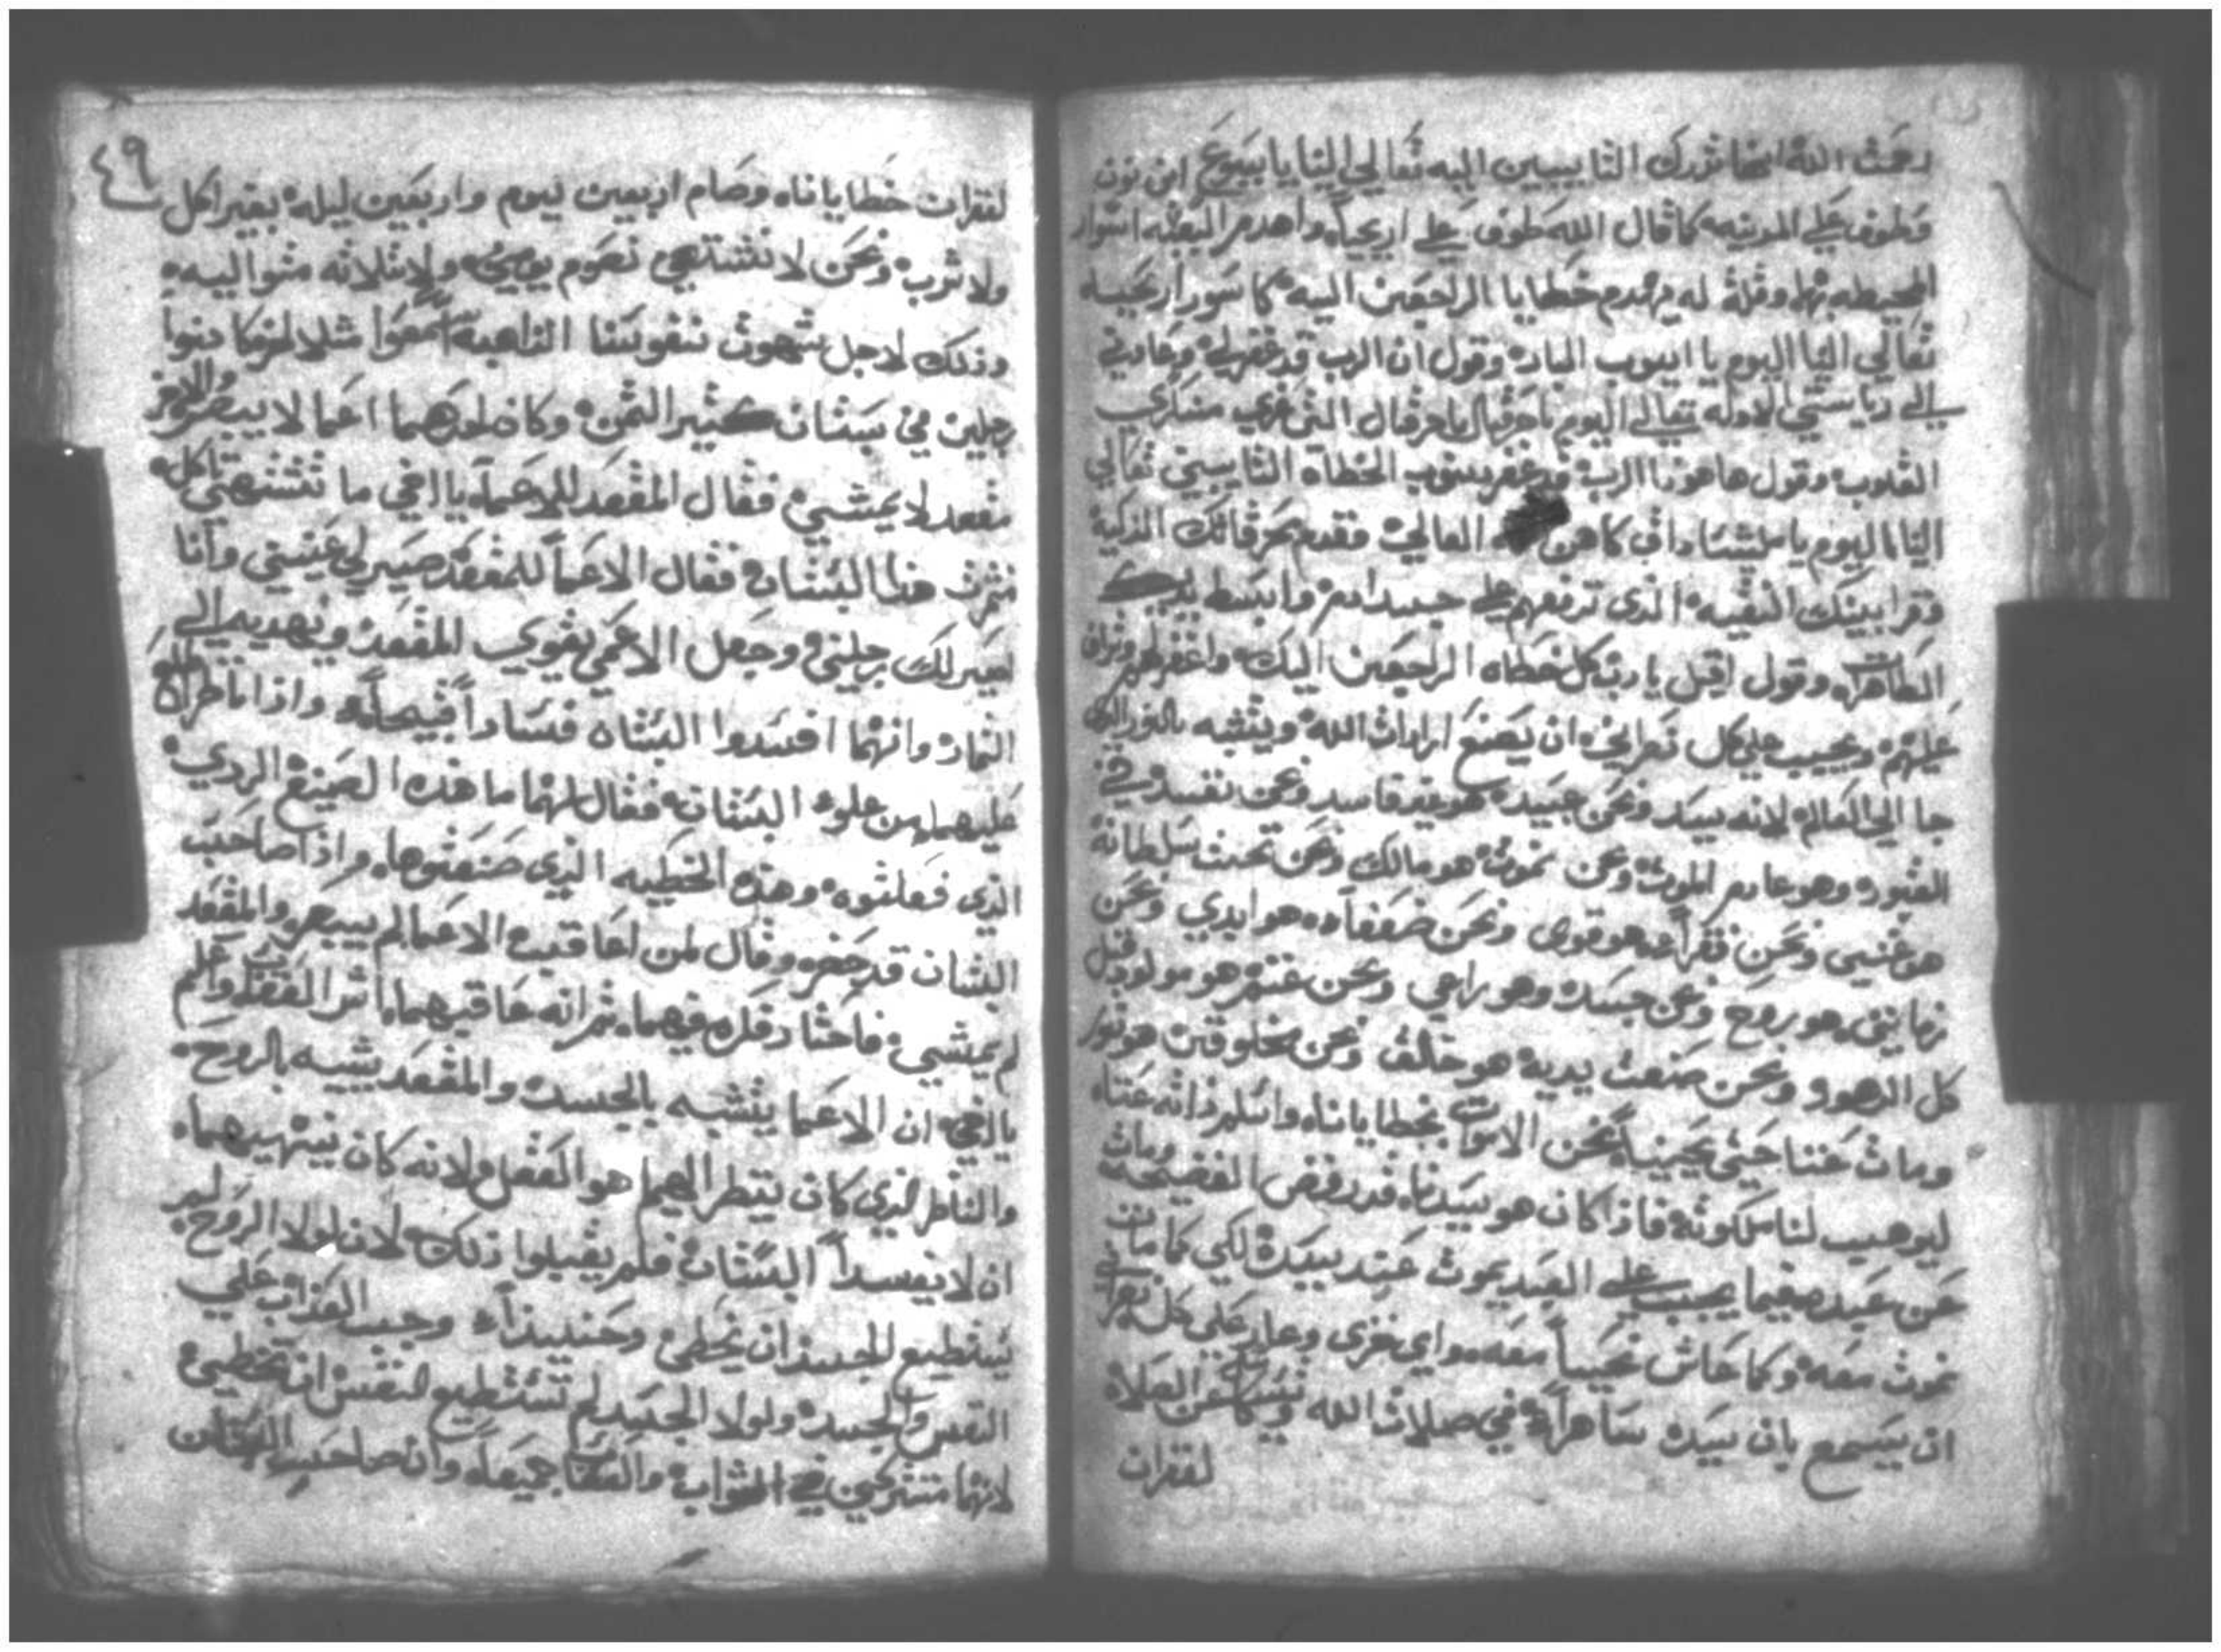 رحمت الله انها تدرك التايبيين اليه تعالي الينا يا يبيوع ابن نون
وطوف علي المدينه كما قال الله طوف علي اريحياه واهدم البعثه اسوار
المحيطه بها وقلة له يهدم خطايا الراجعين اليه كما سور اريحيه
تعالي الينا اليوم يا ايوب البار وقول ان الرب قد غفرلي وعادني
الي رياستي الاوله تعالي اليوم يا حزقيال يا حزقيال التي منكري
القلوب وقول ها هوذا الرب قد غفر ذنوب الخطاه التايبين تعالي
الينا اليوم يا ملشيساداق كاهن الله العالي فقدم محرقاتك الذكية
وقرابينك النقيه الذي ترفعهم علي جسد ادم وابسط يديك
الطاهرات وقول اقبل يا رب كل خطاه الراجعين اليك واغفرلهم
عليهم ويجيب علي كل نصراني ان يصنع ارادات الله ويتشبه بالنور الذي
جا الي العالم لانه سيد ونحن عبيده هو غير فاسد ونحن نفسد في
القبور وهو عادم الموت ونحن نموت هو مالك ونحن تحت سلطانة
هو غنيي ونحن فقراء هو قوي ونحن ضعفاء هو ابدي ونحن
زمانيين هو بروح ونحن جسد وهو راعي ونحن غنم هو مولود قبل
كل الدهور ونحن صنعت يدية هو خالق ونحن مخلوقين هو نور
ومات عننا حتي يحيينا نحن الاموات بخطايانا واسلم ذاته عناه
ليوهيب لنا ملكوته فاذا كان هو سيدنا قد رفض الفضيحه ومات
عن عبده فيما يجب علي العبد يموت عند سيدة لكي كما مات
نموت معه وكما عاش نحيا معه واي خزي وعار علي كل نصراني
ان يسمع بان سيدة ساهراً في صلات الله ويكاسل عن الصلاه
لغفران
٤٩
لغفران خطايانا وصام اربعين يوم واربعين ليله بغير اكل
ولا شرب ونحن لا نشتهي نصوم يومين ولا ثلاثه متواليه
وذلك لاجل شهوت نفوسنا الداهبه اسمعوا مثلا لمن كانوا
رجلين في بستان كثير الثمن وكان احدهما اعما لا يبصر والاخر
مقعد لا يمشي فقال المقعد للاعما يا اخي ما تشتهي تاكل
ثمرت هذا البستان فقال الاعما للمقعد صير لي عيني وانا
اصير لك رجليني وجعل الاعمي يقوي المقعد ويهديه الي
الثمار وانهما افسدوا البستان فساداً قبيحاً واذا ناظر اطلع
عليهما من علو البستان فقال لهما ما هذه الصنيع الردي
الذي فعلتوه وهذه الخطيه الذي صنعتوها واذا صاحب
البستان قد حضر وقال لمن اعاقب الاعما لم يبصر والمقعد
لم يمشي فاحتار فكره فيهما ثم انه عاقبهما اشر العقاب واعلم
يا اخي ان الاعما يتشبه بالجسد والمقعد يشبه بالروح
والناظر الذي كان ينظر اليهما هو العقل لانه كان ينهيهما
ان لا يفسدا البستان فلم يقبلوا ذلك لان لولا الروح لم
يستطيع الجسد ان يخطي وحنييذاً وجب العذاب علي
النفس والجسد ولولا الجسد لم تستطيع النفس ان تخطي
لانهما متشركين في الثواب والعقاب جميعاً وان صاحب البستان